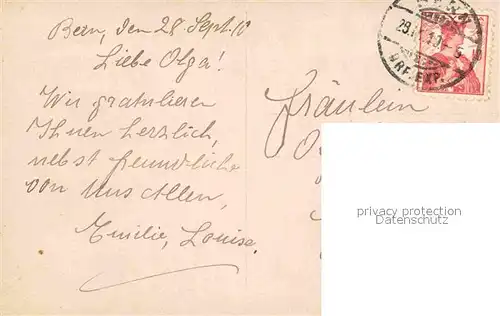 Bern, den 28 Sept. 10
Liebe Olga!
Wir gratulieren
Ihnen herzlich,
nebst freundliche
von Uns Allen,
Emilie, Louise.
Fräulein
BERN
BRF. EXP.
privacy protection
Datenschutz